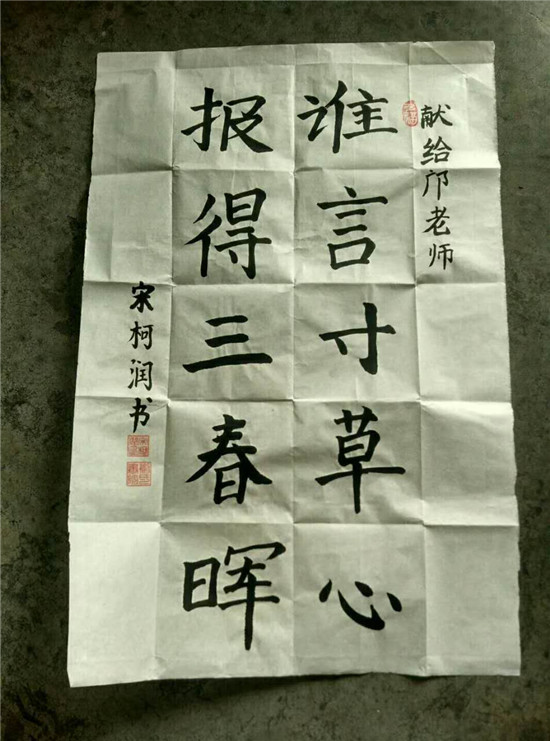 献给邝老师
谁言寸草心
报得三春晖
宋柯润书